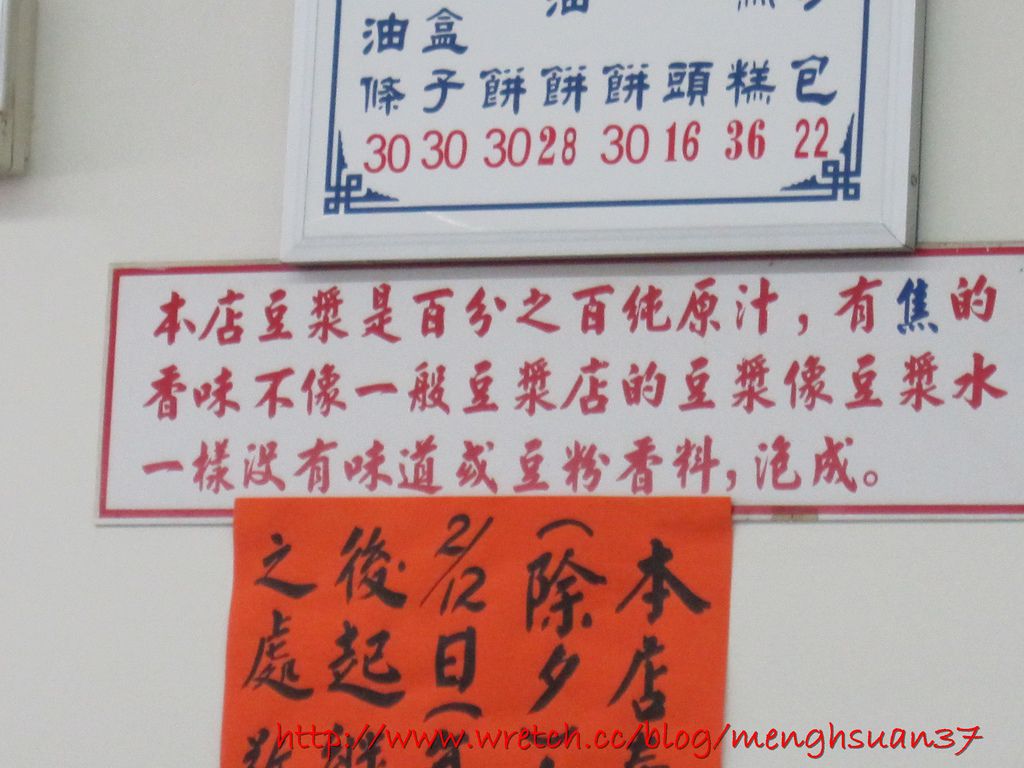 油條 30
盒子 30
餅 30
油 餅 28
餅 30
頭 16
糕 36
包 22
本店豆漿是百分之百純原汁，有焦的
香味不像一般豆漿店的豆漿像豆漿水
一樣沒有味道或豆粉香料，泡成。
本店
(除夕
2/12日(
後起
之處
http://www.wretch.cc/blog/menghsuan37